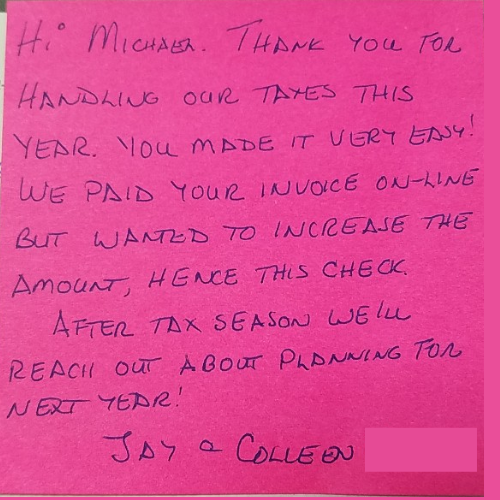 Hi MICHAEL. THANK YOU FOR
HANDLING OUR TAXES THIS
YEAR. YOU MADE IT VERY EASY!
WE PAID YOUR INVOICE ON-LINE
BUT WANTED TO INCREASE THE
AMOUNT, HENCE THIS CHECK.
AFTER TAX SEASON WE'LL
REACH OUT ABOUT PLANNING FOR
NEXT YEAR!
JAY & COLLEEN